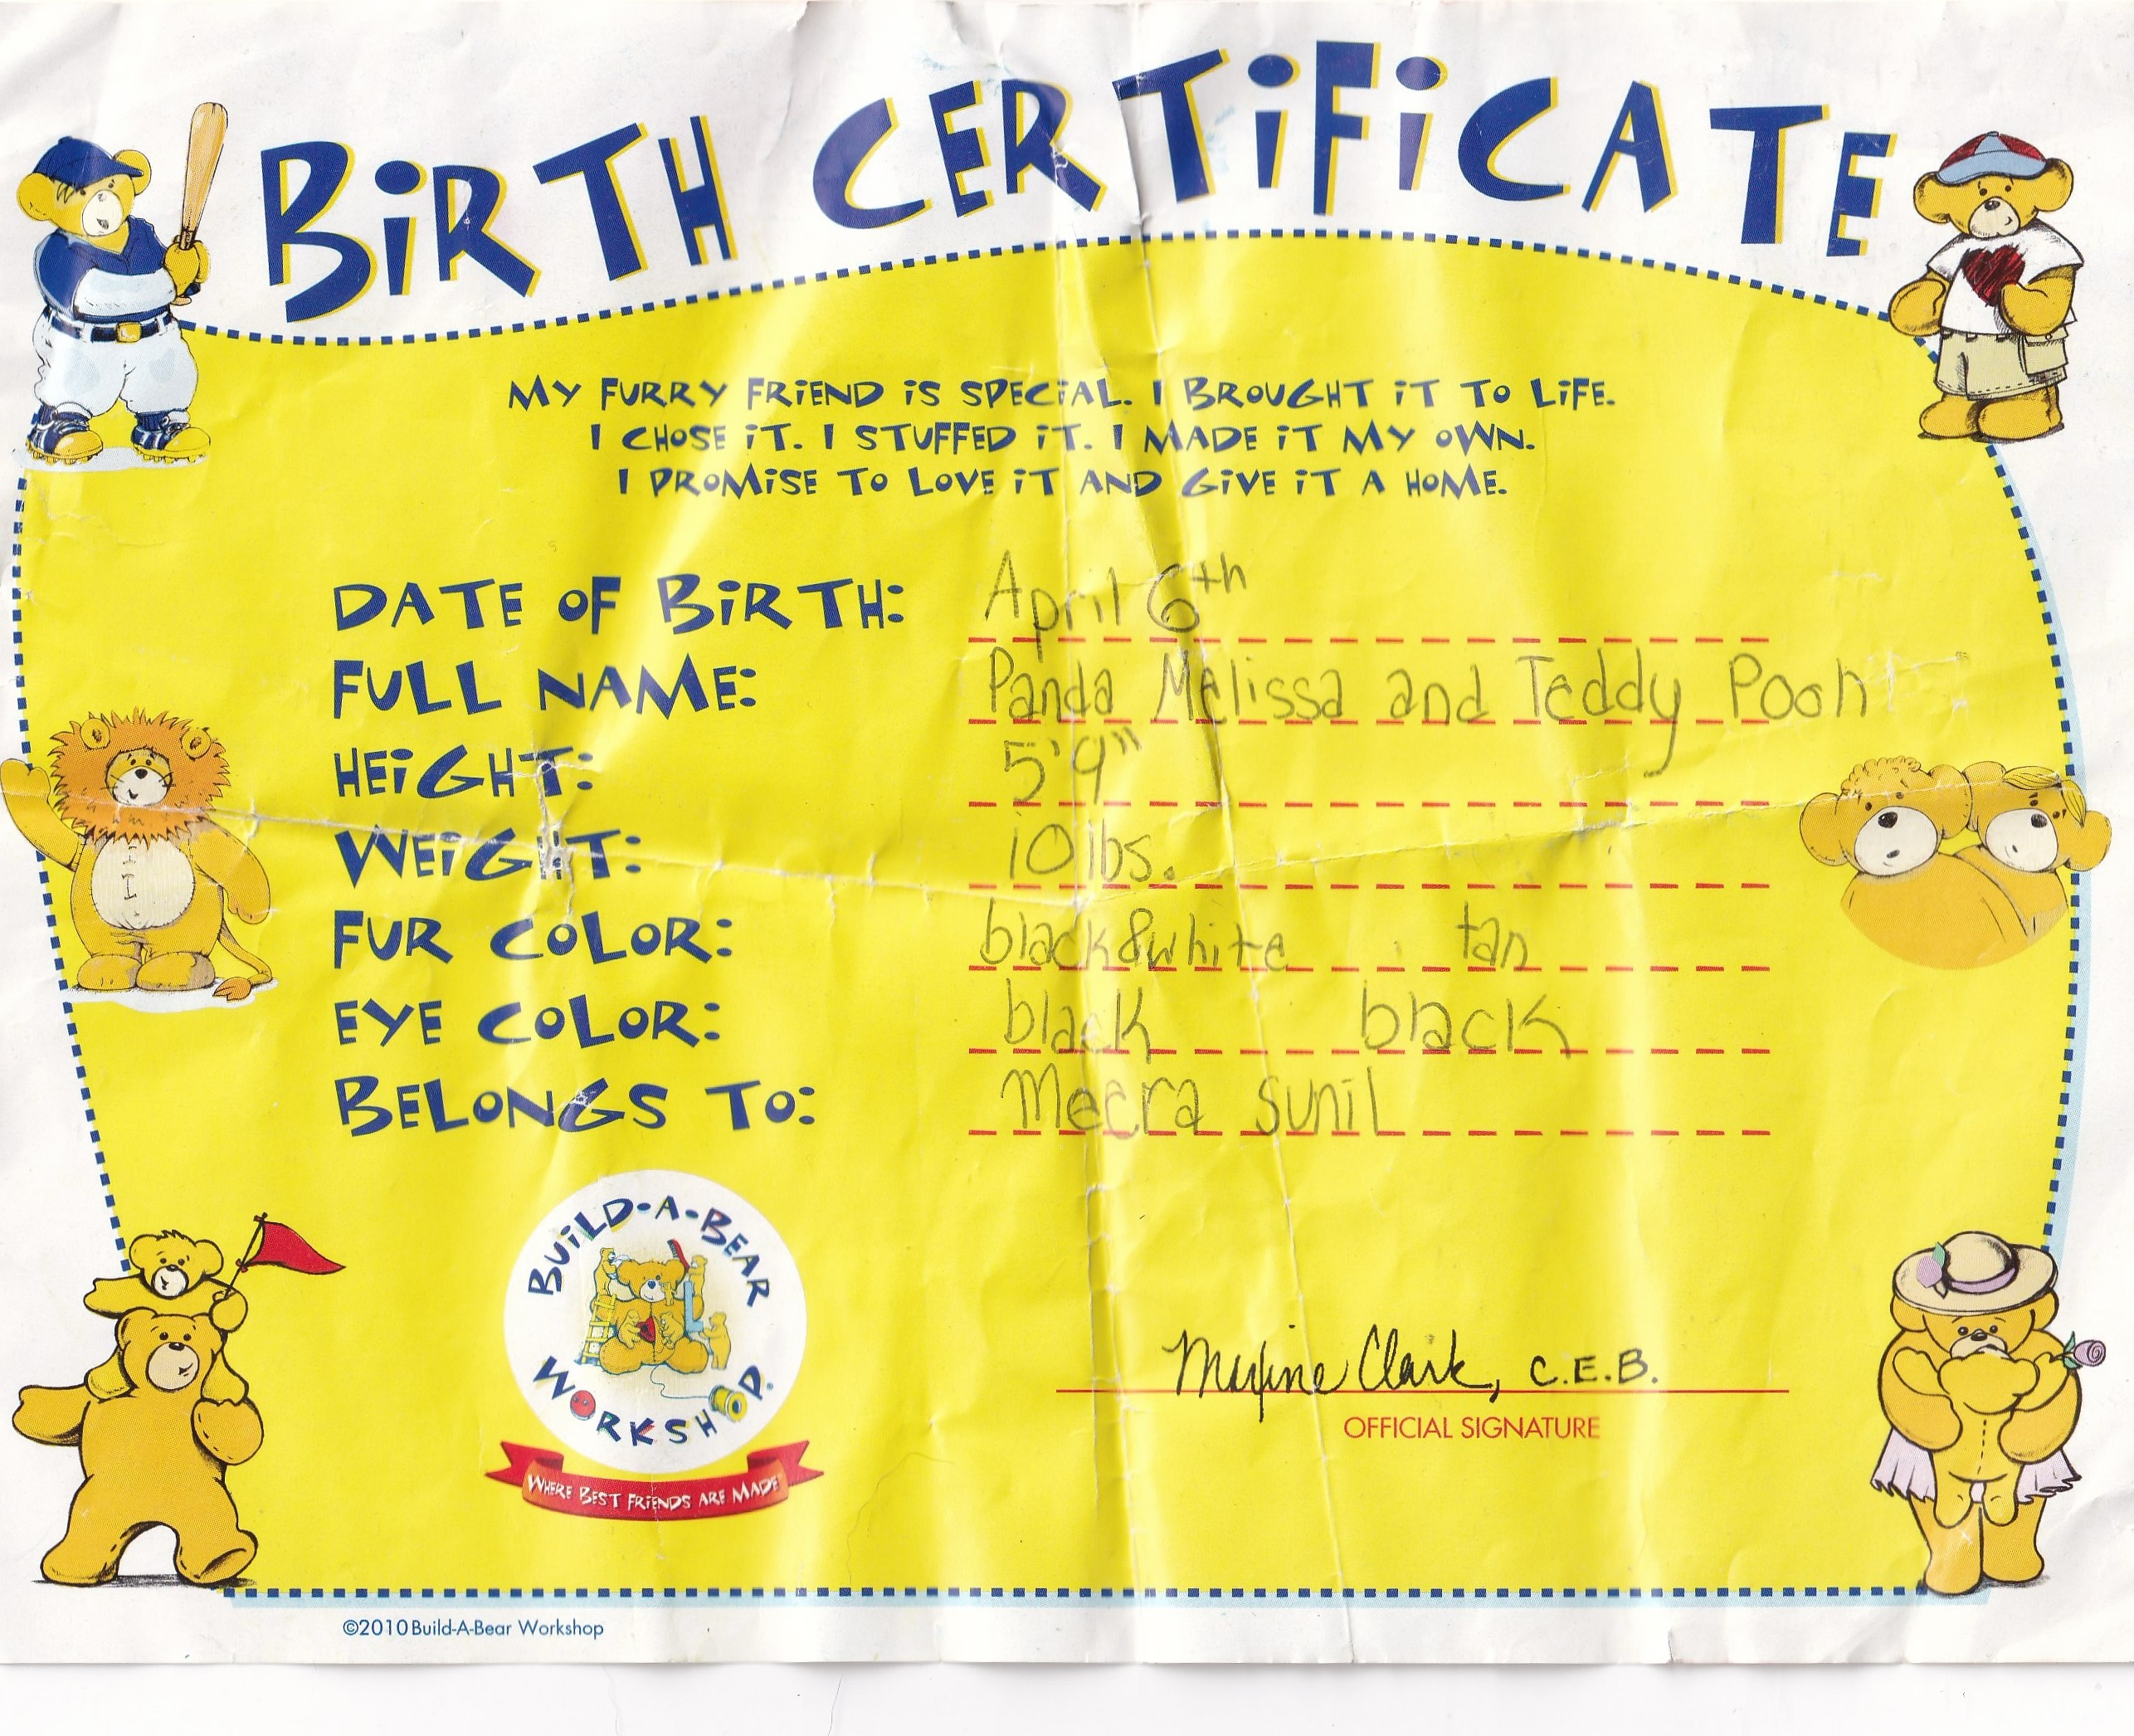 BIRTH CERTIFICATE
MY FURRY FRIEND IS SPECIAL. I BROUGHT IT TO LIFE.
I CHOSE IT. I STUFFED IT. I MADE IT MY OWN.
I PROMISE TO LOVE IT AND GIVE IT A HOME.
DATE OF BIRTH: April 6th
FULL NAME: Panda Melissa and Teddy Pooh
HEIGHT: 5'9"
WEIGHT: 10 lbs.
FUR COLOR: black&white tan
EYE COLOR: black black
BELONGS TO: Meera Sunil
BUILD-A-BEAR
WORKSHOP.
WHERE BEST FRIENDS ARE MADE
Maxine Clark, C.E.B.
OFFICIAL SIGNATURE
©2010 Build-A-Bear Workshop